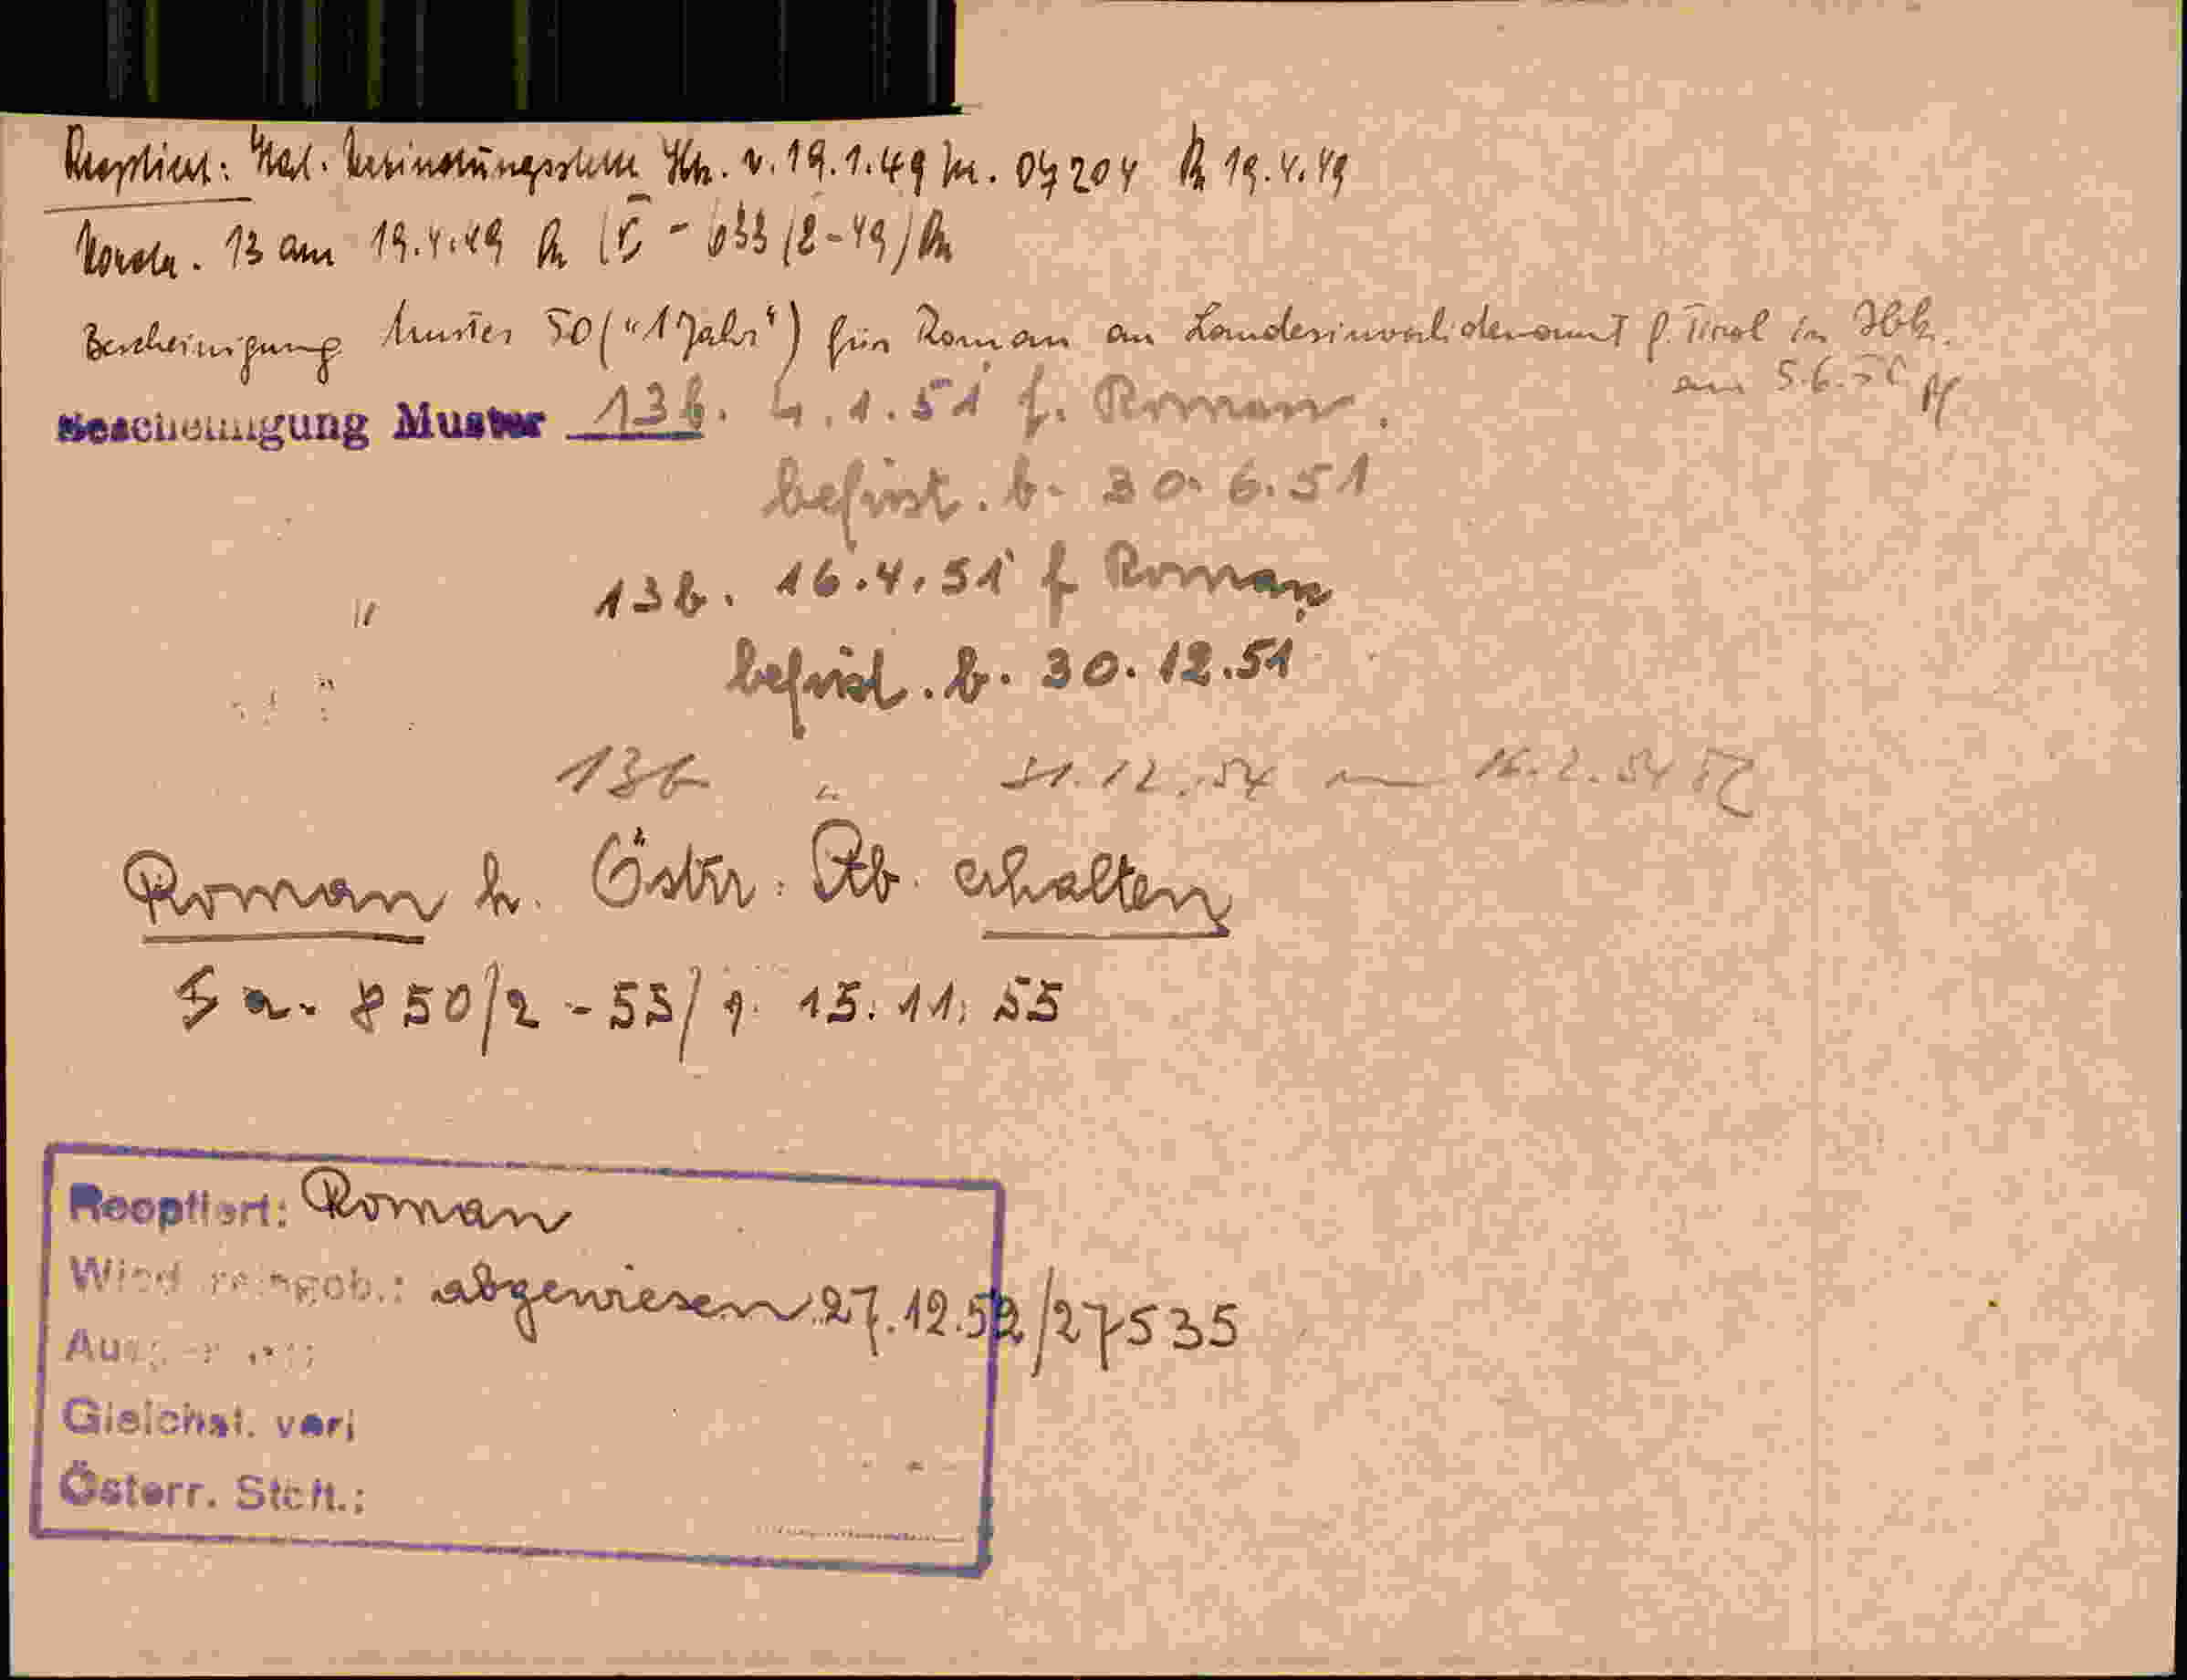 Reoptiert: Ital. Verbindungsstelle Ibk. v. 19.1.49 Nr. 04204 19.4.49
Vordr. 13 am 19.4.49 - 633/2-49/
Bescheinigung Muster 50 ("1 Jahr") für Roman an Landesinvalidenamt f. Tirol in Ibk.
am 5.6.50
Bescheinigung Muster 13b. 4.1.51 f. Roman.
befrist. b. 30.6.51
" 13b. 16.4.51 f Roman
befrist. b. 30.12.51
13b " 31.12.54 16.2.54
Roman h. Östr. Stb. erhalten
5a. 850/2-55/ 15.11.55
Reoptiert: Roman
abgewiesen 27.12.52/27535
Gleichst. verl
Österr. Stch.: